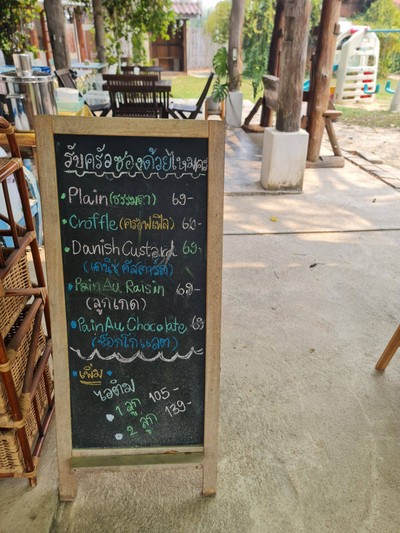 รับครัวซองด้วยไหมคะ
Plain (ธรรมดา) 69-
Croffle (ครอฟเฟิล) 69-
Danish Custard 69-
(เดนิช คัสตาร์ด)
Pain Au Raisin 69-
(ลูกเกด)
Pain Au Chocolate 69
(ช็อกโกแลต)
เพิ่ม
ไอติม
1 ลูก 105-
2 ลูก 139-